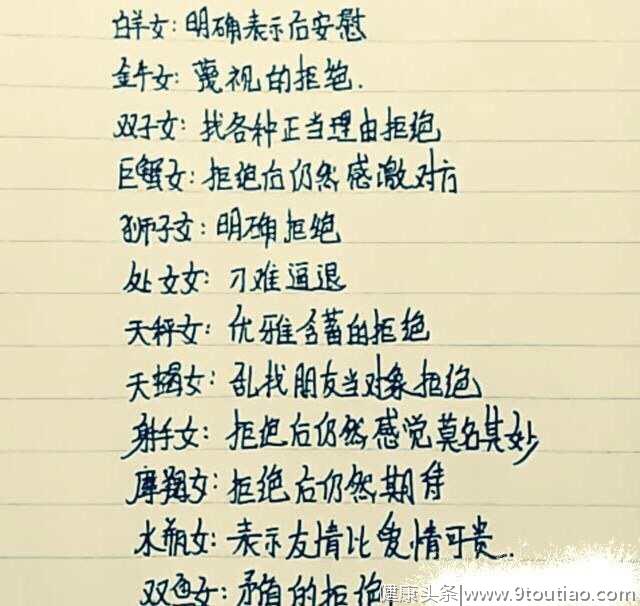 白羊女：明确表示后安慰
金牛女：蔑视的拒绝.
双子女：找各种正当理由拒绝
巨蟹女：拒绝后仍然感激对方
狮子女：明确拒绝
处女女：刁难逼退
天秤女：优雅含蓄的拒绝
天蝎女：乱找朋友当对象拒绝
射手女：拒绝后仍然感觉莫名其妙
摩羯女：拒绝后仍然期待
水瓶女：表示友情比爱情可贵...
双鱼女：矛盾的拒绝！
健康头条|www.9toutiao.com